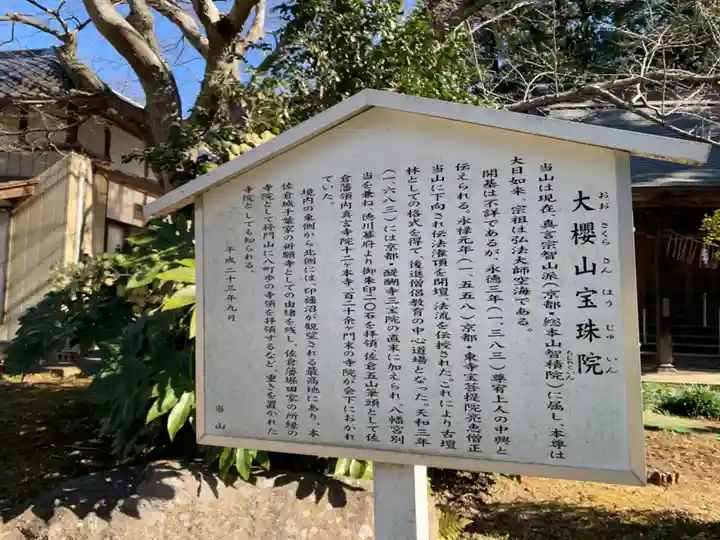 大櫻山宝珠院
おお さくら さん ほう じゅ いん
当山は現在、真言宗智山派(京都・総本山智積院)に属し、本尊は
ちしゃくいん
大日如来、宗祖は弘法大師空海である。
開基は不詳であるが、永徳三年(一三八三)尊宥上人の中興と
伝えられる。永禄元年(一五五八)京都・東寺宝菩提院亮恵僧正
当山に下向され伝法潅頂を開壇、法流を伝授された。これにより古壇
林としての格式を得て、後進僧侶教育の中心道場となった。天和三年
(一六八三)には京都・醍醐寺三宝院の直末に加えられ、八幡宮別
当を兼ね、徳川幕府より御朱印二〇石を拝領、佐倉五山筆頭として佐
倉藩領内真言寺院十二ケ本寺、百二十余ケ門末の寺院が会下におかれ
ていた。
境内の東側から北側には、印旛沼が観望される最高地にあり、本
佐倉城千葉家の祈願寺としての由緒を残し、佐倉藩堀田家の所縁の
寺院として将門山に八町歩の寺領を拝領するなど、重きを置かれた
寺院としても知られる。
平成二十三年九月
当山